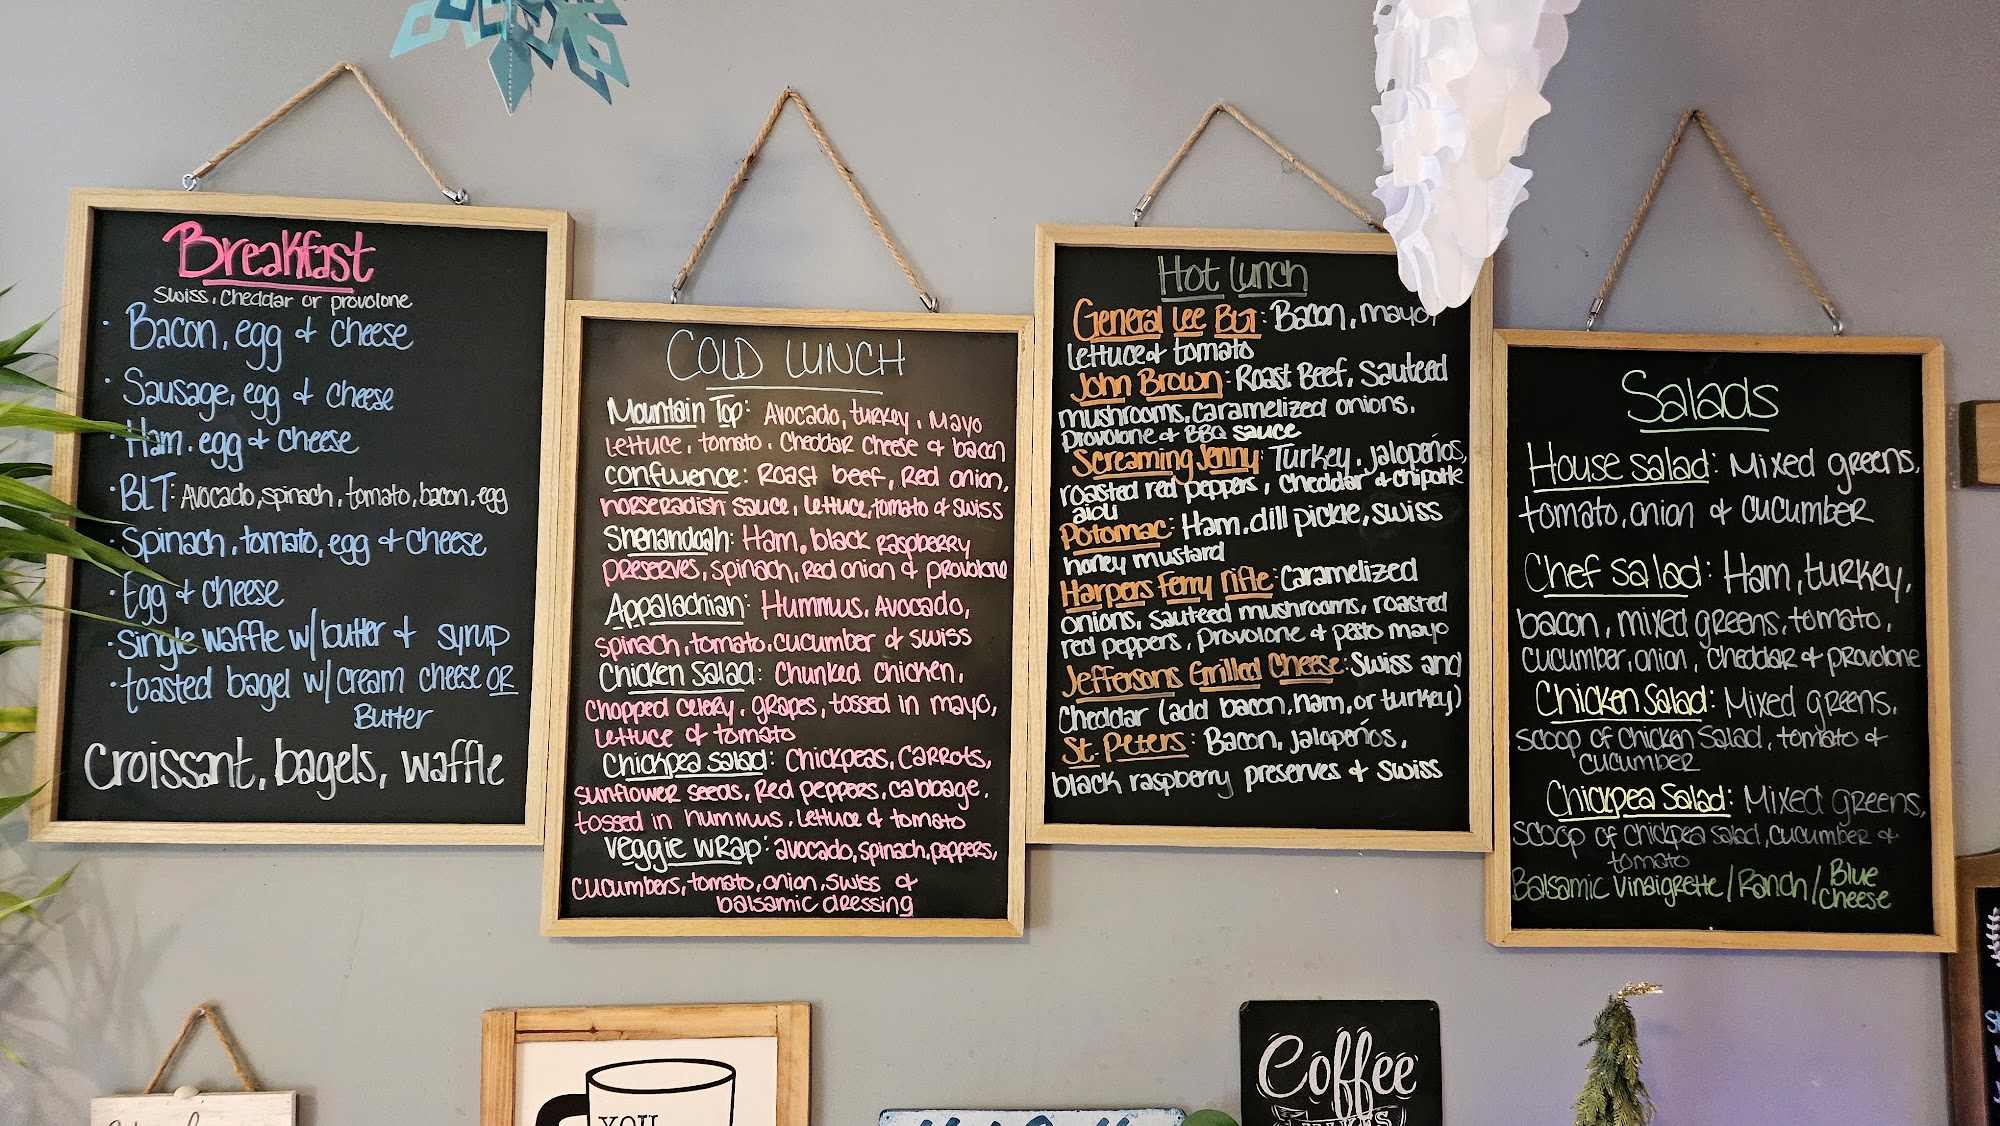 Breakfast
Swiss, Cheddar or provolone
· Bacon, egg + cheese
· Sausage, egg + cheese
· Ham. egg + cheese
· BLT: Avocado, spinach, tomato, bacon, egg
· Spinach, tomato, egg + cheese
· Egg + cheese
· Single waffle w/butter + syrup
· toasted bagel w/cream cheese OR
Butter
Croissant, bagels, waffle
COLD LUNCH
Mountain Top: Avocado, turkey, Mayo
lettuce, tomato, cheddar cheese + bacon
Confluence: Roast beef, Red onion,
horseradish sauce, lettuce, tomato + swiss
Shenandoah: Ham, black raspberry
preserves, spinach, red onion & provolone
Appalachian: Hummus, Avocado,
spinach, tomato, cucumber & swiss
Chicken Salad: Chunked chicken,
chopped celery, grapes, tossed in mayo,
lettuce & tomato
Chickpea salad: Chickpeas, Carrots,
sunflower seeds, Red peppers, cabbage,
tossed in hummus, lettuce & tomato
veggie wrap: avocado, spinach, peppers,
cucumbers, tomato, onion, swiss &
balsamic dressing
Hot lunch
General Lee BLT: Bacon, mayo,
lettuce & tomato
John Brown: Roast Beef, Sauteed
mushrooms, Caramelized onions,
provolone & BBQ sauce
Screaming Jenny: Turkey, jalopeños,
roasted red peppers, cheddar & chipotle
aioli
Potomac: Ham, dill pickle, swiss
honey mustard
Harpers Ferry rifle: Caramelized
onions, sauteed mushrooms, roasted
red peppers, provolone & pesto mayo
Jeffersons Grilled Cheese: Swiss and
Cheddar (add bacon, ham, or turkey)
St. Peters: Bacon, jalopeños,
black raspberry preserves & swiss
Salads
House salad: Mixed greens,
tomato, onion & cucumber
Chef salad: Ham, turkey,
bacon, mixed greens, tomato,
cucumber, onion, cheddar & provolone
Chicken Salad: Mixed greens,
scoop of chicken salad, tomato &
cucumber
Chickpea Salad: Mixed Greens,
scoop of chickpea salad, cucumber &
tomato
Balsamic Vinaigrette / Ranch / Blue
Cheese
YOU
Coffee